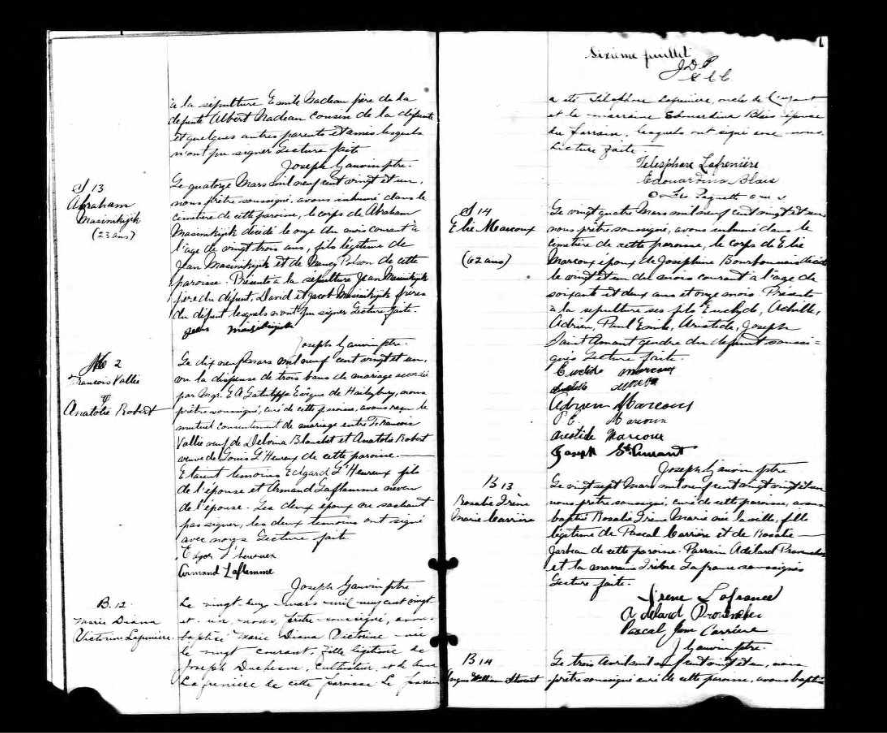 à la sépulture Emile Nadeau père de la
défunte Albert Nadeau cousin de la défunte
et quelques autres parents et amis lesquels
n'ont pu signer Lecture faite
Joseph Gauvin ptre.
S 13
Abraham
Masinikijik
(23 ans)
Le quatorze Mars mil neuf cent vingt et un,
nous prêtre soussigné, avons inhumé dans le
cimetière de cette paroisse, le corps de Abraham
Masinikijik décédé le onze du mois courant à
l'age de vingt trois ans, fils légitime de
Jean Masinikijik et de Nancy de cette
paroisse. Présents à la sépulture Jean Masinikijik
père du défunt, David et Jacob Masinikijik frères
du défunt lesquels n'ont pu signer Lecture faite.
Jean Masinikijik
Joseph Gauvin ptre.
M 2
Francois Vallée
&
Anatolie Robert
Le dix neuf Mars mil neuf cent vingt et un,
vu la dispense de trois bans de mariage accordée
par Mgr. E A Latulippe Evêque de Haileybury, nous
prêtre soussigné, curé de cette paroisse, avons reçu le
mutuel consentement de mariage entre Francois
Vallée veuf de Delvina Blanchet et Anatolie Robert
veuve de Louis L'Heureux de cette paroisse.
Etaient témoins Edgard L'Heureux fils
de l'épouse et Armand Laflamme neveu
de l'épouse. Les deux époux ne sachant
pas signer, les deux témoins ont signé
avec nous Lecture faite
Edgar L'heureux
Armand Laflamme
Joseph Gauvin ptre
B. 12
Marie Diana
Victorine
Le vingt mars mil neuf cent vingt
et un, nous, prêtre soussigné, avons
baptisé Marie Diana Victorine née
le vingt courant, fille légitime de
Joseph Duchesne, cultivateur, et de
Lafrenière de cette paroisse Le parrain
Sixième feuillet
J.D.P.
a été Télesphore Lafrenière, oncle de l'enfant
et la marraine Edouardina Blais épouse
du parrain, lesquels ont signé avec nous
Lecture faite.
Telesphore Lafrenière
Edouardina Blais
S 14
Elie Marcoux
(62 ans)
Le vingt quatre Mars mil neuf cent vingt et un
nous prêtre soussigné, avons inhumé dans le
cimetière de cette paroisse, le corps de Elie
Marcoux époux de Josephine Bourbonnais décédé
le vingt et un du mois courant à l'age de
soixante et deux ans et onze mois. Présents
à la sépulture ses fils Euclyde, Achille,
Adrien, Paul Emile, Aristide, Joseph
Saint Amant gendre du défunt soussi-
gnés Lecture faite.
Euclide Marcoux
Adrien Marcoux
P E Marcoux
Aristide Marcoux
Joseph St Amant
Joseph Gauvin ptre
B 13
Rosalie Irène
Marie Carrière
Le vingt sept Mars mil neuf cent vingt et un
nous prêtre soussigné, curé de cette paroisse, avons
baptisé Rosalie Irène Marie née la veille, fille
légitime de Pascal Carrière et de Rosalie
de cette paroisse. Parrain Adélard
et la marraine Irène Lafrance soussignés
Lecture faite.
Irene Lafrance
Adelard
Pascal Carrière
J Gauvin ptre.
B 14
William Stewart
Le trois Avril mil neuf cent vingt et un, nous
prêtre soussigné curé de cette paroisse, avons baptisé